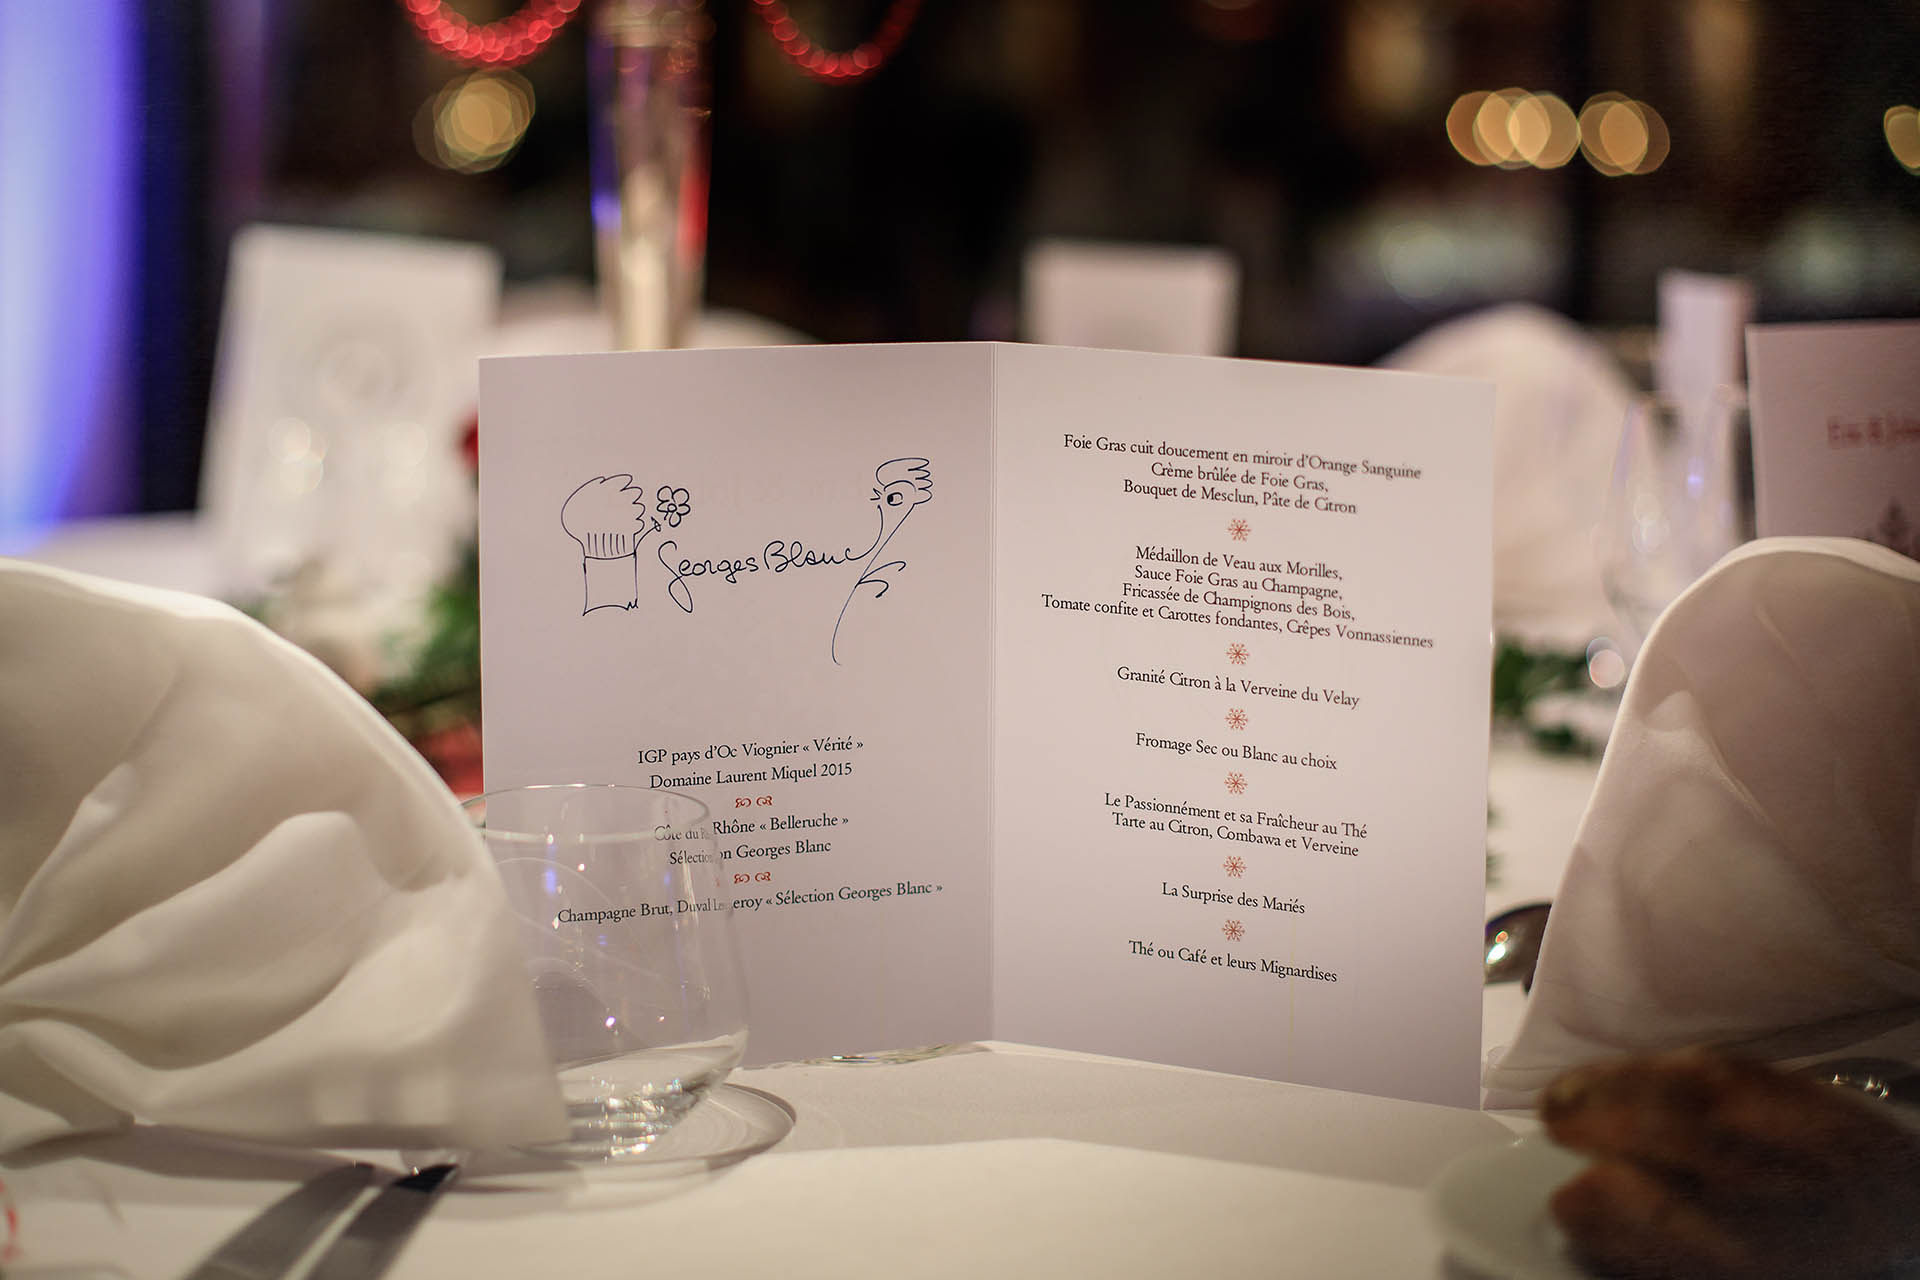 Georges Blanc
IGP pays d'Oc Viognier « Vérité »
Domaine Laurent Miquel 2015
Côte du Rhône « Belleruche »
Sélection Georges Blanc
Champagne Brut, Duval Leroy « Sélection Georges Blanc »
Foie Gras cuit doucement en miroir d'Orange Sanguine
Crème brûlée de Foie Gras,
Bouquet de Mesclun, Pâte de Citron
Médaillon de Veau aux Morilles,
Sauce Foie Gras au Champagne,
Fricassée de Champignons des Bois,
Tomate confite et Carottes fondantes, Crêpes Vonnassiennes
Granité Citron à la Verveine du Velay
Fromage Sec ou Blanc au choix
Le Passionnément et sa Fraîcheur au Thé
Tarte au Citron, Combawa et Verveine
La Surprise des Mariés
Thé ou Café et leurs Mignardises